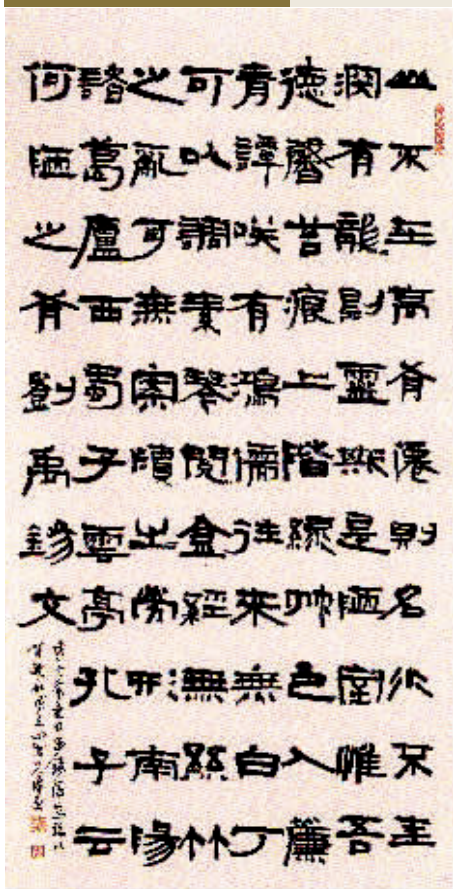 山不在高有僊則名水不在
深有龍則靈斯是陋室惟吾
德馨苔痕上階綠艸色入簾
青譚咲有鴻儒往來無白丁
可以調素琴閱金經無絲竹
之亂耳無案牘之勞形南陽
諸葛廬西蜀子雲亭孔子云
何陋之有劉禹錫文